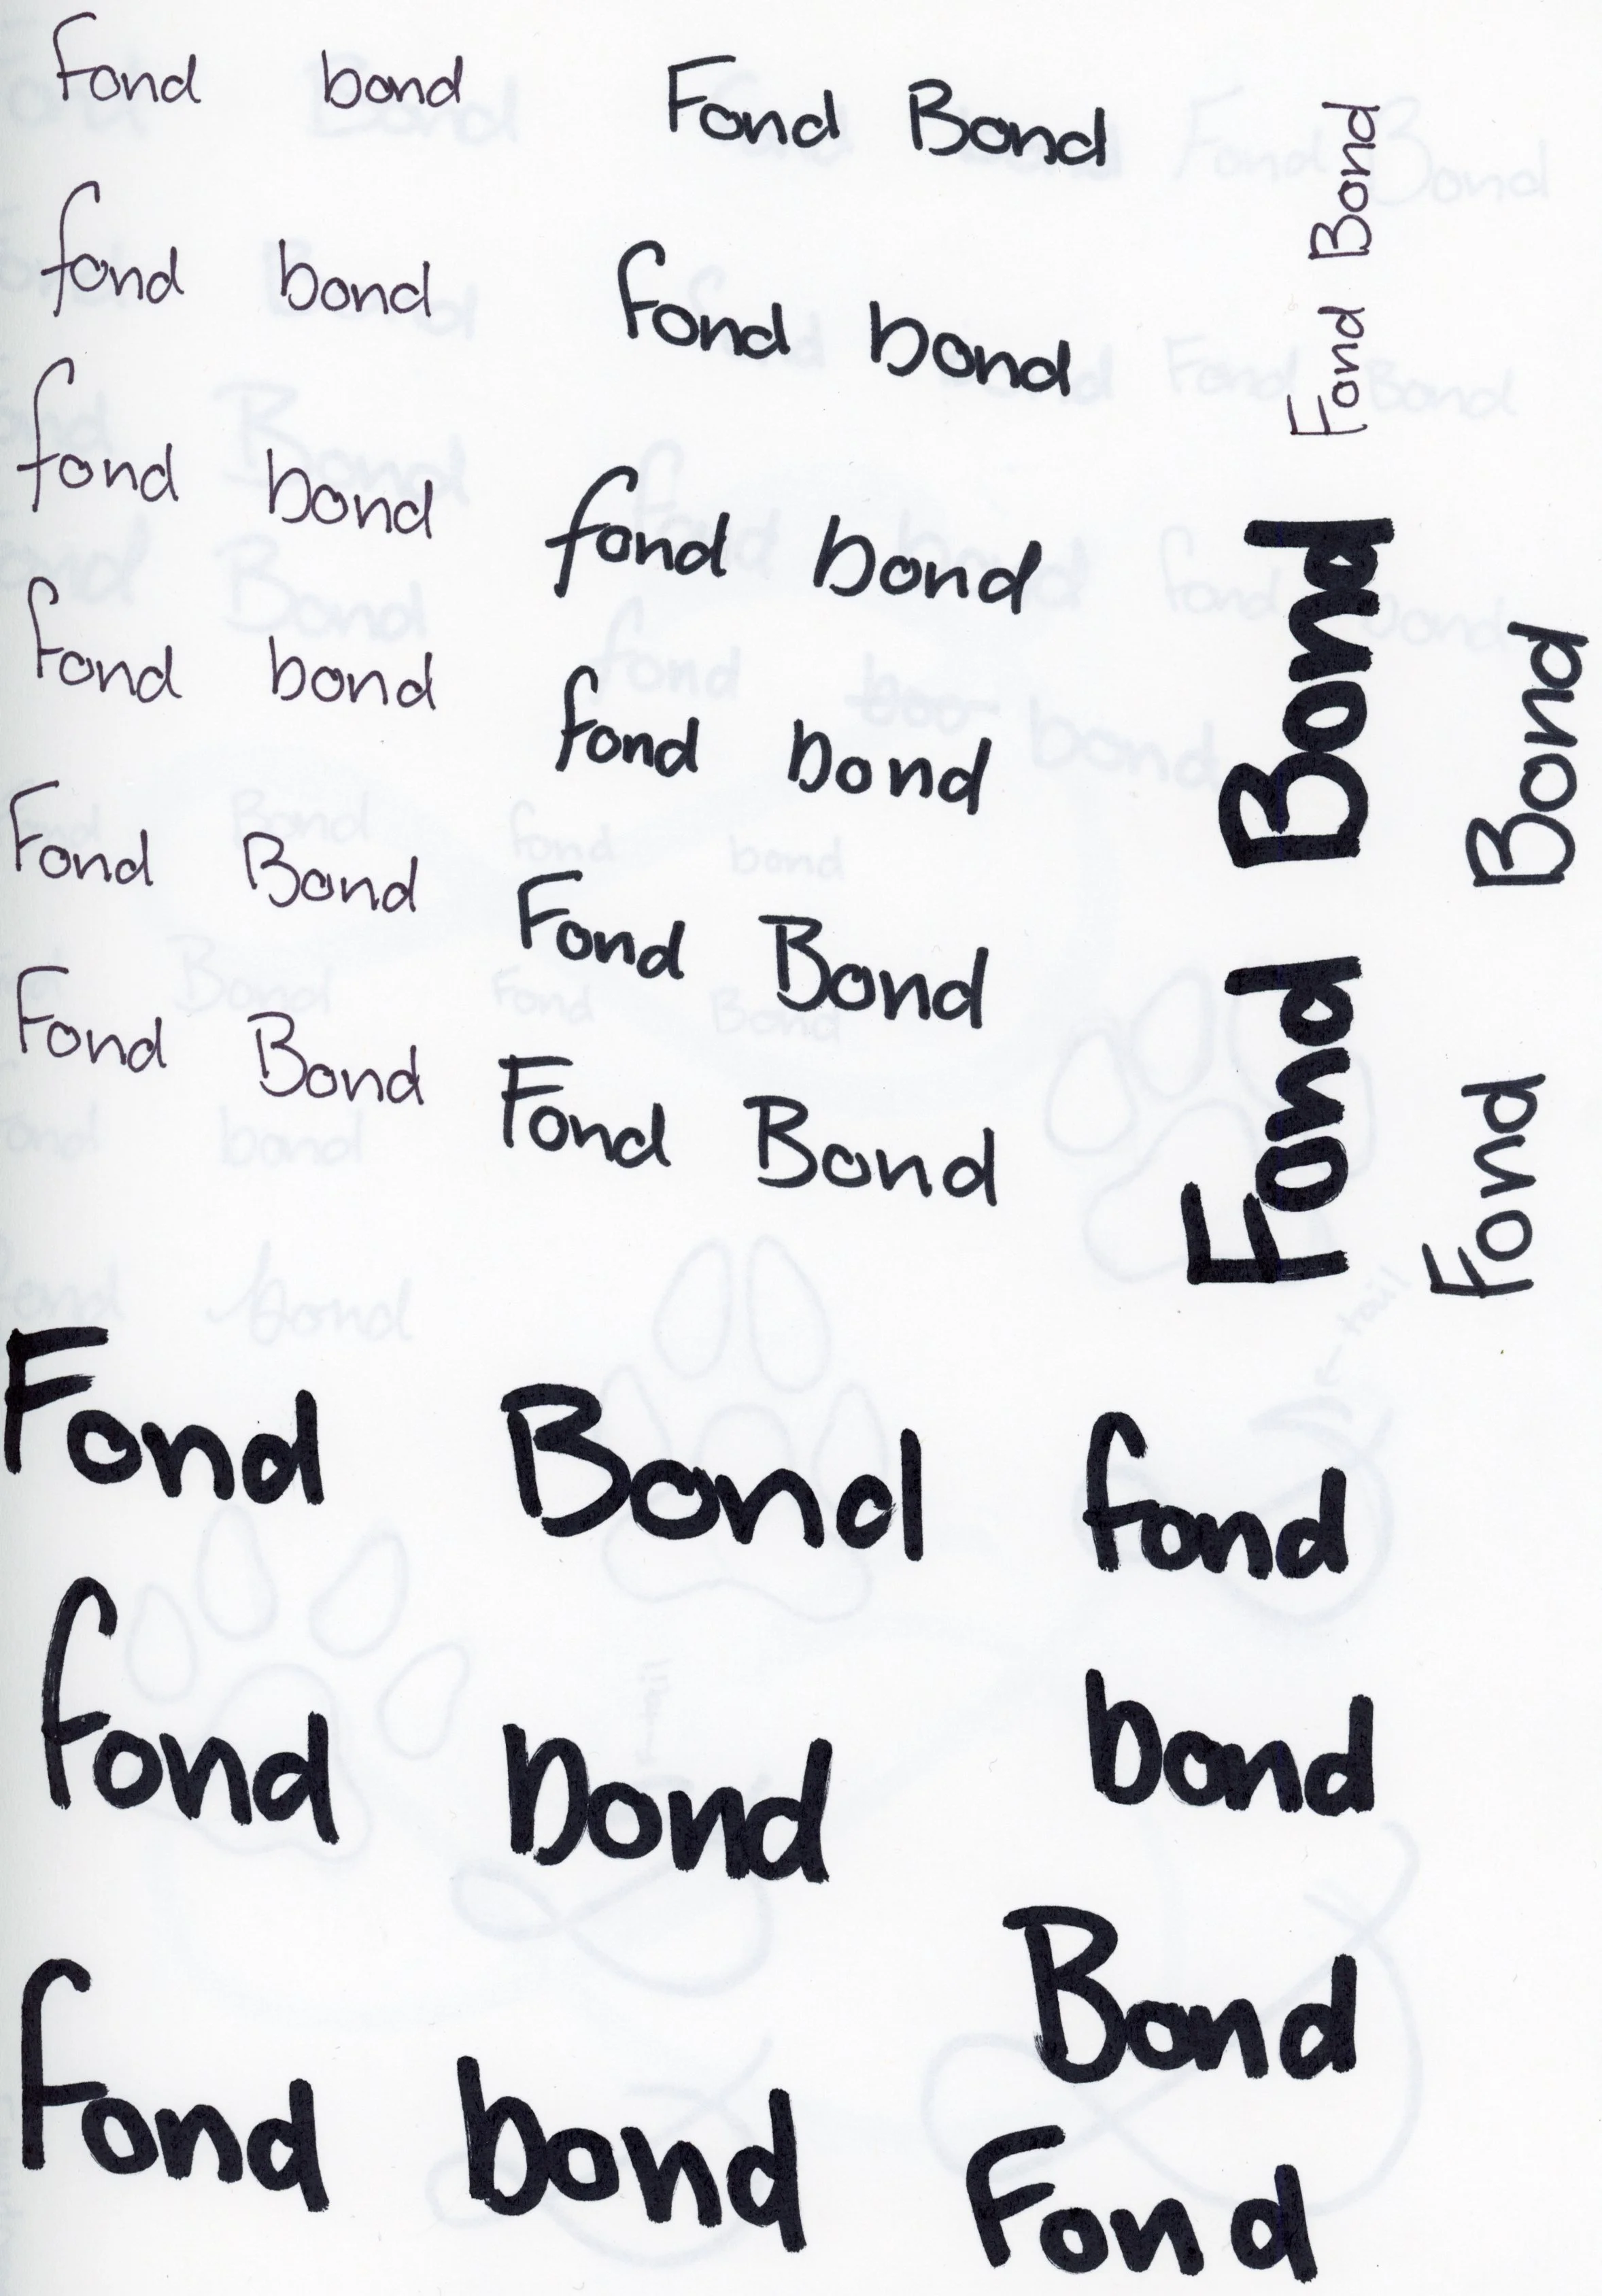 fond bond
fond bond
fond bond
fond bond
Fond Bond
Fond Bond
Fond Bond
fond bond
fond bond
fond bond
Fond Bond
Fond Bond
Fond Bond
Fond Bond
Fond Bond
Fond Bond
fond bond
fond bond
fond
bond
Bond
Fond